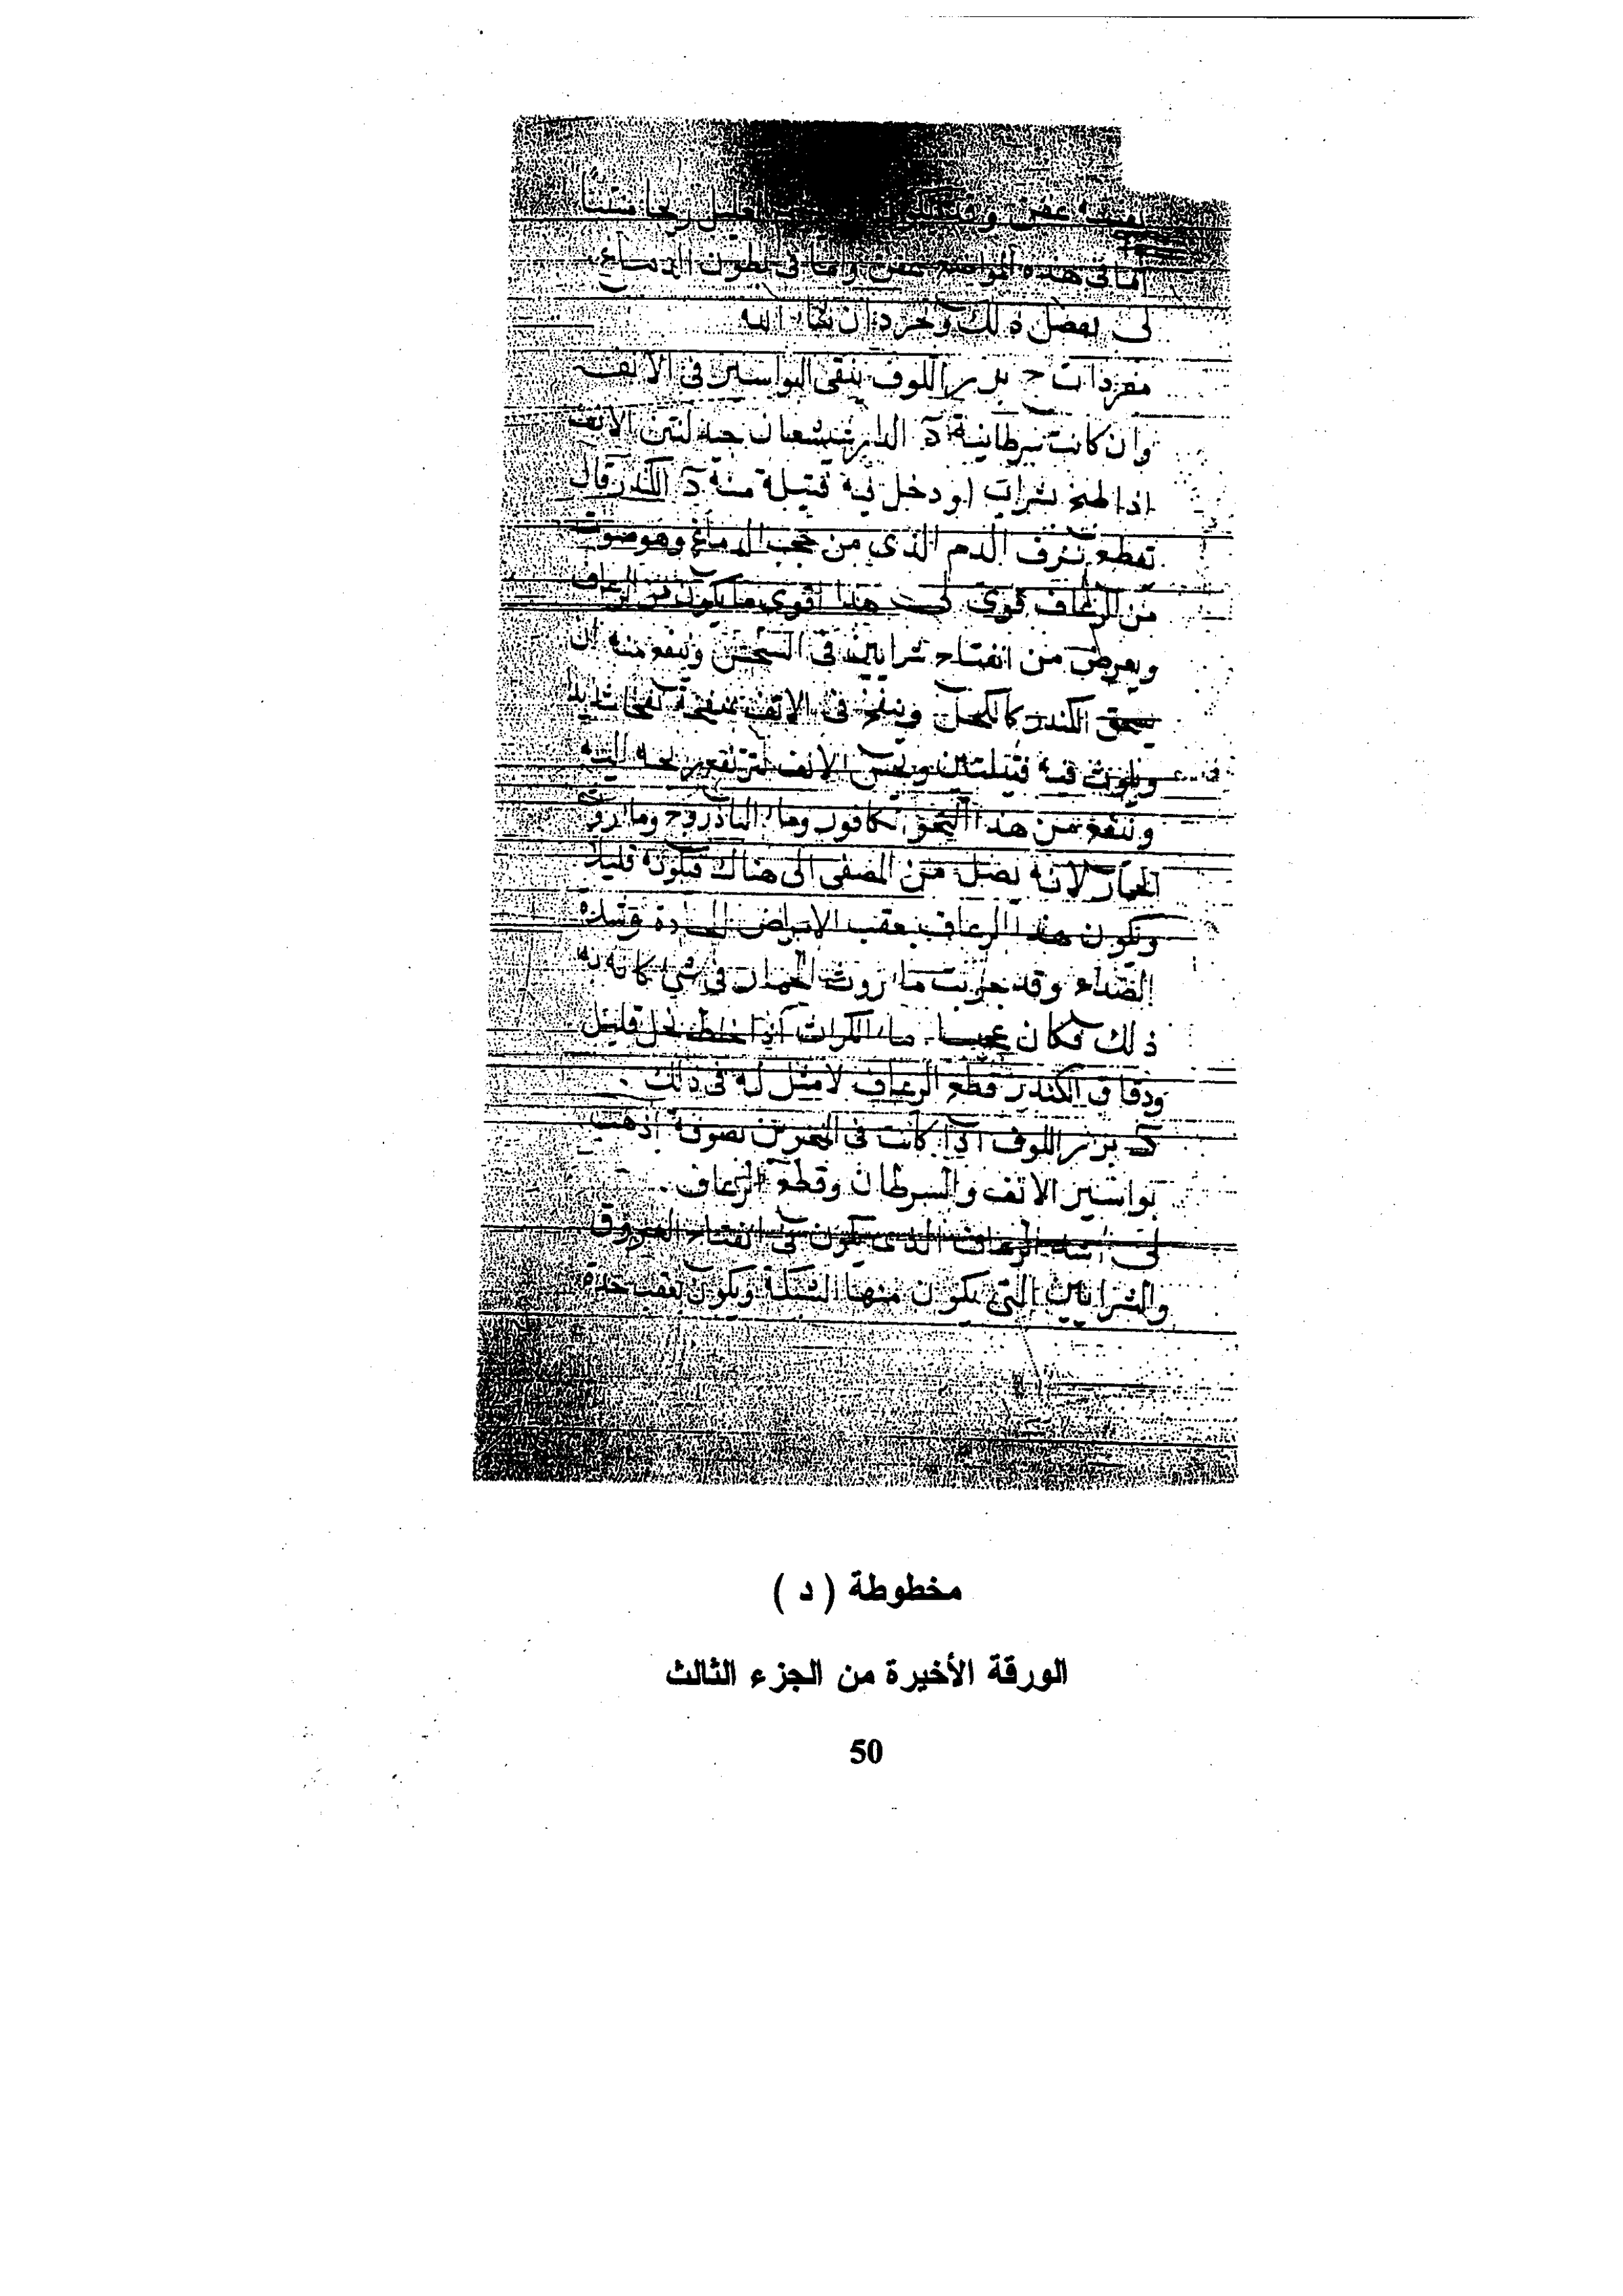 عفن ريحا منتنا
اما في هذه المواضع عفن واما في بطون الدماغ
لى يفصل ذلك ويحرد ان شاء الله
مفردات ج بزر اللوف ينقى البواسير في الانف
وان كانت سرطانية د الدارشيشعان جيد لنتن الانف
اذا طبخ بشراب ودخل فيه فتيلة منه د الكندر قال
تقطع نزف الدم الذي من حجب الدماغ وهو صوب
من الرعاف قوى لى هذا اقوى ما يكون من الرعاف
ويعرض من انفتاح شرايين في وينفع منه ان
يسحق الكندر كالكحل وينفخ في الانف بمنفخة نفخات
ويلوث فيه فتيلتين الانف
وينفع من هذا كافور وماء الباذروج وما روث
الحمار لانه يصل من المصفى الى هناك فيكويه قليلا
ويكون هذا الرعاف بعقب الامراض الحادة وشدة
الصداع وقد جربت ما روث الحمار في شي كانه به
ذلك فكان عجيبا ماء الكراث اذا خلط بخل قليل
ودقاق الكندر قطع الرعاف لا مثل له في ذلك.
د بزر اللوف اذا كانت في بصوفة اذهبت
بواسير الانف والسرطان وقطع الرعاف.
لى اشد الرعاف الذي يكون في انفتاح العروق
والشرايين التي يكون منها الشبكة ويكون بعقب حدة
مخطوطة ( د )
الورقة الأخيرة من الجزء الثالث
50